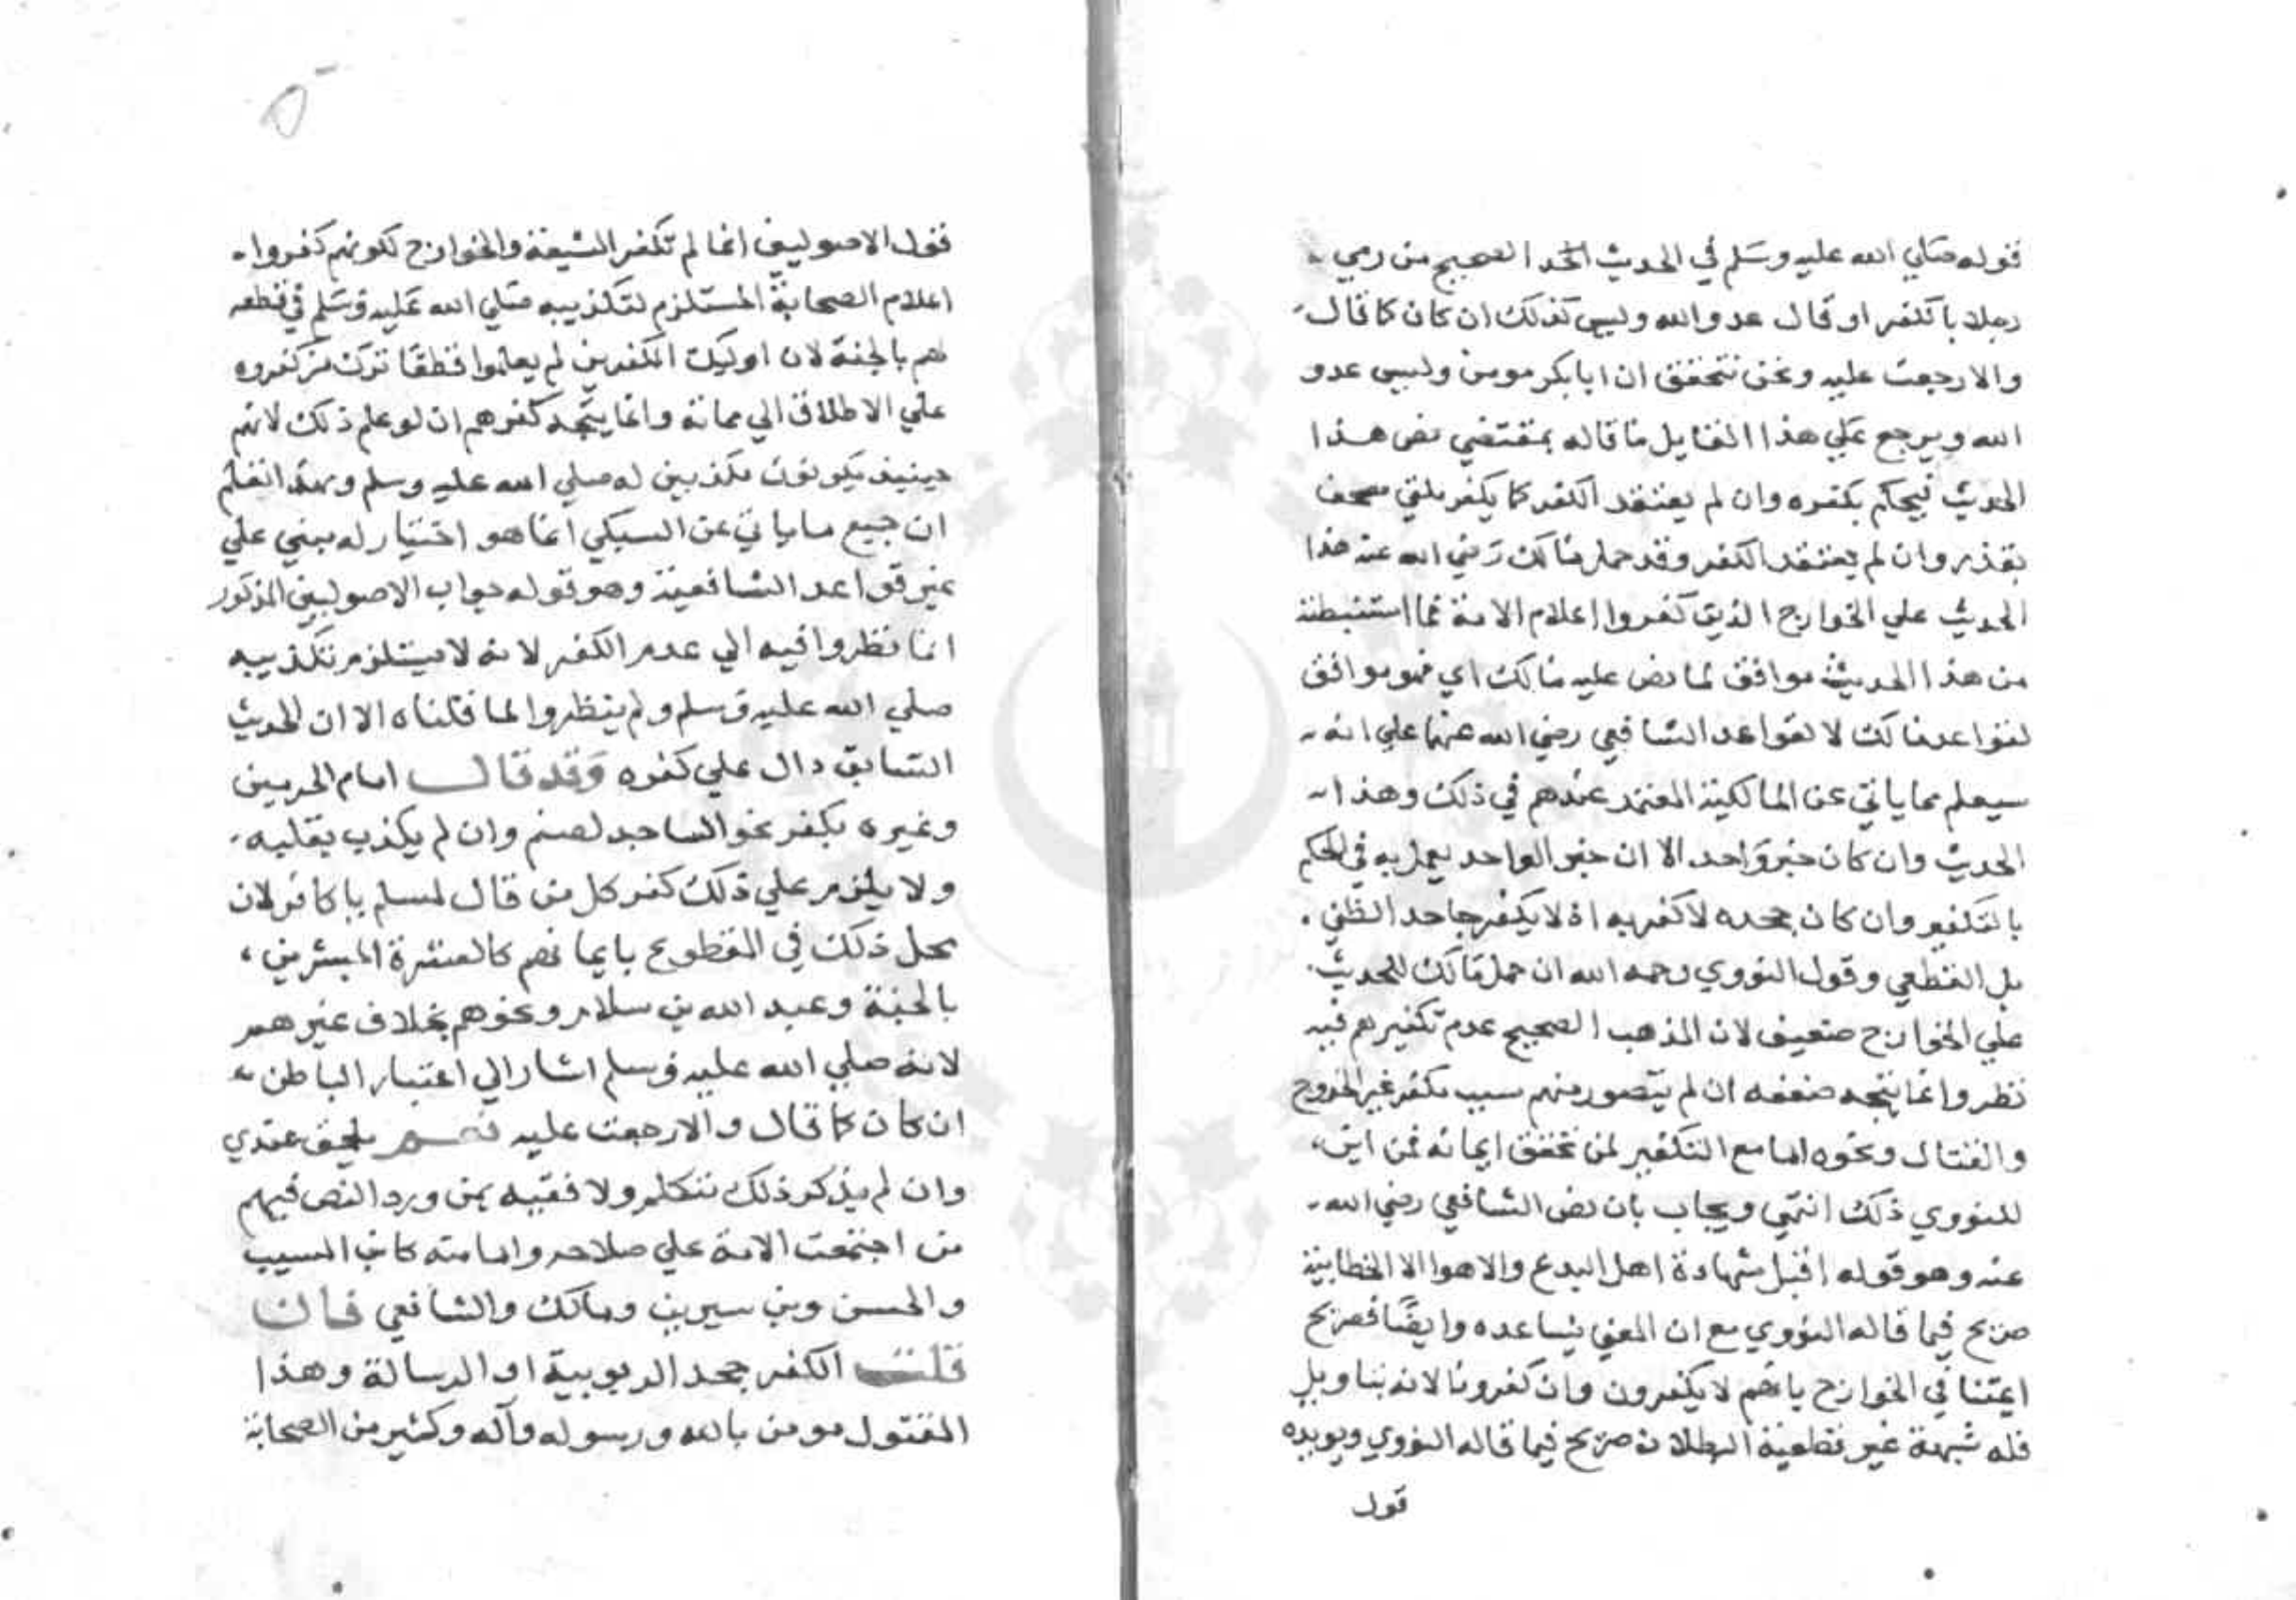 قوله صلي الله عليه وسلم في الحديث الصحيح من رمي
رجلا بالكفر او قال عدو الله وليس كذلك ان كان كما قال
والا رجعت عليه ونحن نتحقق ان ابا بكر مومن وليس عدو
الله ويرجع علي هذا القايل ما قاله بمقتضي نص هذا
الحديث فيحكم بكفره وان لم يعتقد الكفر كما يكفر ملقي مصحف
بقذر وان لم يعتقد الكفر وقد حمل مالك رضي الله عنه هذا
الحديث علي الخوارج الذين كفروا اعلام الامة فما استنبطته
من هذا الحديث موافق لما نص عليه مالك اي فهو موافق
لقواعد مالك لا لقواعد الشافعي رضي الله عنهما علي انه
سيعلم مما ياتي عن المالكية المعتمد عندهم في ذلك وهذا
الحديث وان كان خبر واحد الا ان خبر الواحد يعمل به في الحكم
بالتكفير وان كان جحده لا كفر به اذ لا يكفر جاحد الظني
بل القطعي وقول النووي رحمه الله ان حمل مالك للحديث
علي الخوارج ضعيف لان المذهب الصحيح عدم تكفيرهم فيه
نظر وانما يتجه ضعفه ان لم يتصور منهم سبب مكفر غير الخروج
والقتال ونحوه اما مع التكفير لمن تحقق ايمانه فمن اين
للنووي ذلك انتهي ويجاب بان نص الشافعي رضي الله
عنه وهو قوله اقبل شهادة اهل البدع والاهوا الا الخطابية
صريح فيما قاله النووي مع ان المعني يساعده وايضا فصريح
ايمتنا في الخوارج بانهم لا يكفرون وان كفرونا لانه بتاويل
فله شبهة غير قطعية البطلان صريح فيما قاله النووي ويويده
قول
٥
قول الاصوليين انما لم تكفر الشيعة والخوارج لكونهم كفروا
اعلام الصحابة المستلزم لتكذيبه صلي الله عليه وسلم في قطعه
لهم بالجنة لان اوليك المكفرين لم يعلموا قطعا تزكية من كفروه
علي الاطلاق الي مماته وانما يتجه كفرهم ان لو علم ذلك لانهم
حينيذ يكونون مكذبين له صلي الله عليه وسلم وبهذا تعلم
ان جميع ما ياتي عن السبكي انما هو اختيار له مبني علي
غير قواعد الشافعية وهو قوله جواب الاصوليين المذكور
انما نظروا فيه الي عدم الكفر لانه لا يستلزم تكذيبه
صلي الله عليه وسلم ولم ينظروا لما قلناه الا ان الحديث
السابق دال علي كفره وقد قال امام الحرمين
وغيره يكفر نحو الساجد لصنم وان لم يكذب بقلبه
ولا يلزم علي ذلك كفر كل من قال لمسلم يا كافر لان
محل ذلك في المقطوع بايمانهم كالعشرة المبشرين
بالجنة وعبد الله بن سلام ونحوهم بخلاف غيرهم
لانه صلي الله عليه وسلم اشار الي اعتبار الباطن
ان كان كما قال والا رجعت عليه نعم يلحق عندي
وان لم يذكر ذلك متكلم ولا فقيه بمن ورد النص فيهم
من اجتمعت الامة علي صلاحه وامامته كابن المسيب
والحسن وبن سيرين ومالك والشافعي فان
قلت الكفر جحد الربوبية او الرسالة وهذا
المقتول مومن بالله ورسوله وآله وكثير من الصحابة